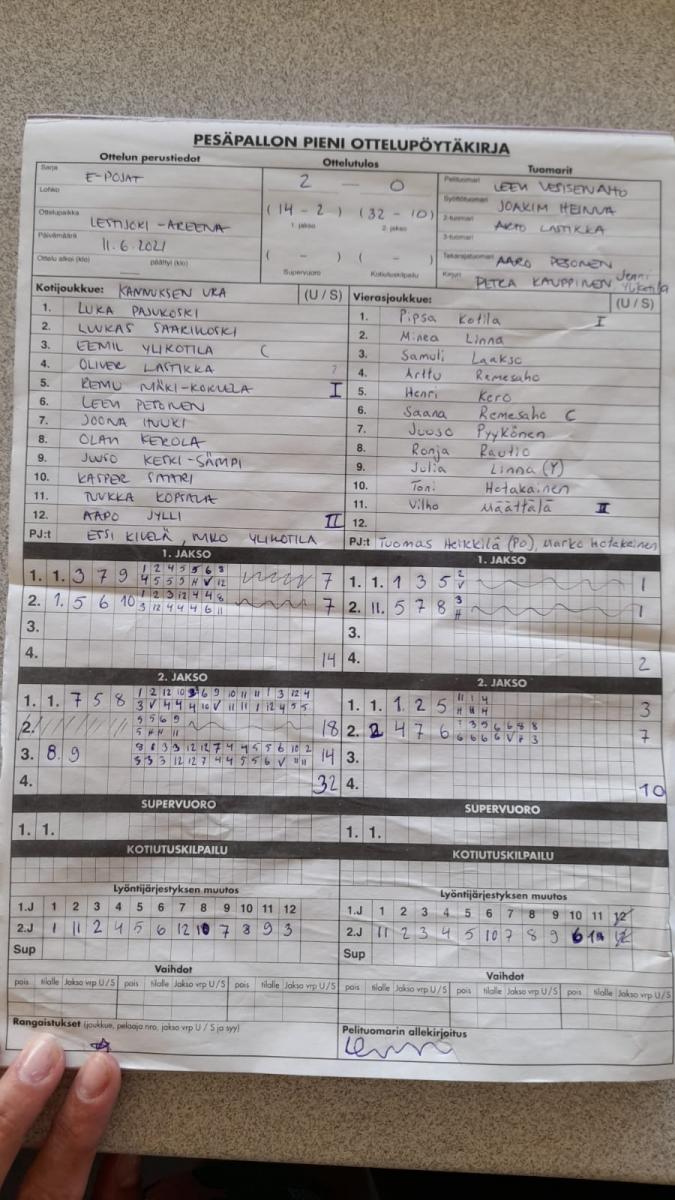 PESÄPALLON PIENI OTTELUPÖYTÄKIRJA
Ottelun perustiedot
Sarja E-POJAT
Lohko
Ottelupaikka LESTIJOKI-AREENA
Päivämäärä 11.6.2021
Ottelu alkoi (klo) päättyi (klo)
Ottelutulos
2 — 0
(14 - 2) (32 - 10)
1. jakso 2. jakso
( - ) ( - )
Supervuoro Kotiutuskilpailu
Tuomarit
Pelituomari LEEVI VESISENAHO
Syöttötuomari JOAKIM
2-tuomari ARTO LASTIKKA
3-tuomari
Takarajatuomari AARO PESONEN
Kirjuri PETRA KAUPPINEN Jenni Ylikotila
Kotijoukkue: KANNUKSEN URA (U / S)
1. LUKA PAJUKOSKI
2. LUUKAS SAARIKOSKI
3. EEMIL YLIKOTILA C
4. OLIVER LASTIKKA
5. REMU MÄKI-KOKUELA I
6. LEEVI PETONEN
7. JOONA
8. OLAVI KEROLA
9. JUUSO KESKI-SÄMPI
10. KASPER SAARI
11. TUUKKA KOPSALA
12. AAPO JYLLI II
PJ:t ETSI KIVELÄ, NIKO YLIKOTILA
Vierasjoukkue: (U / S)
1. Pipsa Kotila I
2. Minea Linna
3. Samuli Laakso
4. Arttu Remesaho
5. Henri Kero
6. Saana Remesaho C
7. Juuso Pyykönen
8. Ronja Rautio
9. Julia Linna (Y)
10. Toni Hotakainen
11. Vilho Määttälä II
12.
PJ:t Tuomas Heikkilä (PO), Marko Hotakainen
1. JAKSO
1. 1. 3 7 9 1 2 4 5 5 6 8 7
4 5 5 9 H V 12
2. 1. 5 6 10 1 2 3 12 4 4 8 7
3 12 4 4 4 6 11
3.
4. 14
1. JAKSO
1. 1. 1 3 5 2 1
V
2. 11. 5 7 8 3 1
H
3.
4. 2
2. JAKSO
1. 1. 7 5 8
2. 5 5 6 9 18
5 H H 11
3. 8. 9 14
4. 32
2. JAKSO
1. 1. 1 2 5 11 1 4 3
2. 2 4 7 6 7
3.
4. 10
SUPERVUORO
1. 1.
KOTIUTUSKILPAILU
SUPERVUORO
1. 1.
KOTIUTUSKILPAILU
Lyöntijärjestyksen muutos
1.J 1 2 3 4 5 6 7 8 9 10 11 12
2.J 1 11 2 4 5 6 12 10 7 8 9 3
Sup
Lyöntijärjestyksen muutos
1.J 1 2 3 4 5 6 7 8 9 10 11 12
2.J 11 2 3 4 5 10 7 8 9 6 1 12
Sup
Vaihdot
pois tilalle Jakso vrp U/S pois tilalle Jakso vrp U/S pois tilalle Jakso vrp U/S
Vaihdot
pois tilalle Jakso vrp U/S pois tilalle Jakso vrp U/S pois tilalle Jakso vrp U/S
Rangaistukset (joukkue, pelaaja nro, jakso vrp U / S ja syy)
Pelituomarin allekirjoitus